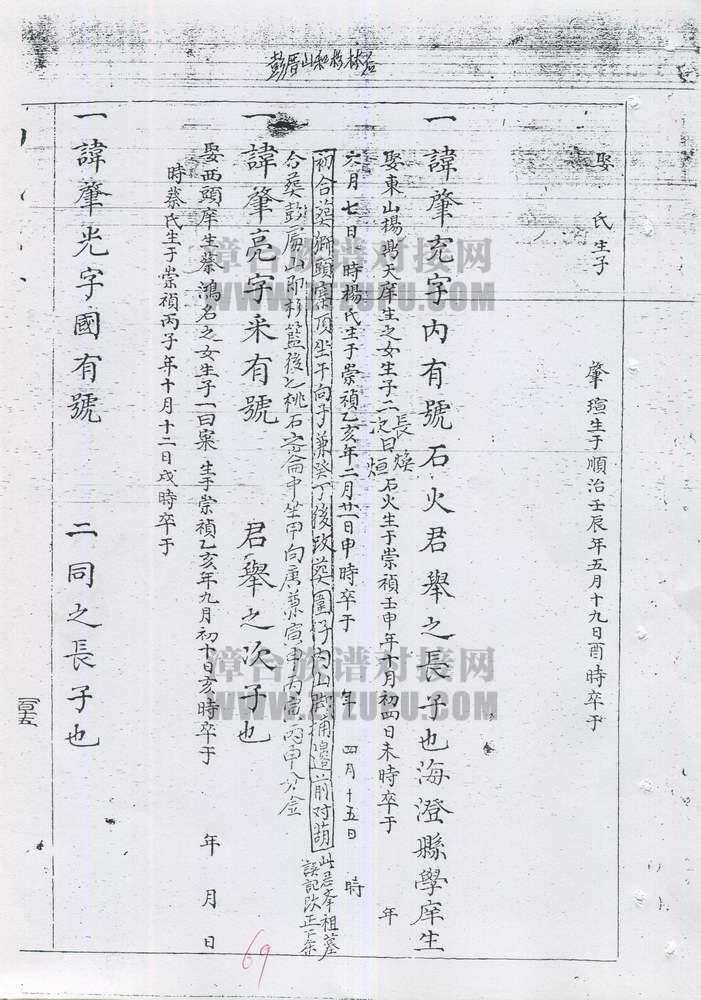 彭厝山和杉林石
娶 氏生子
肇瑄生于順治壬辰年五月十九日酉時卒于
一諱肇充字内有號石火君舉之長子也海澄縣學庠生
娶東山楊興天庠生之女生子二長煥次曰烜石火生于崇禎壬申年十月初四日未時卒于 年
六月七日 時楊氏生于崇禎乙亥年二月廿一日申時卒于 年 四月十五日 時
初合葬獅頭寨頂坐午向子兼癸丁後改葬 仔内山 邊前对葫
此君奉祖墓
誤記改正
合葬彭厝山即杉籃後 桃石 崙中坐甲向庚兼寅申丙寅丙申分金
一諱肇亮字采有號 君舉之次子也
娶西頭庠生蔡鴻名之女生子一曰寀生于崇禎乙亥年九月初十日亥時卒于 年 月 日
時蔡氏生于崇禎丙子年十月十二日戌時卒于
一諱肇光字國有號 二同之長子也
69
漳台族谱对接网
WWW.ZTZUPU.COM
漳台族谱对接网
WWW.ZTZUPU.COM